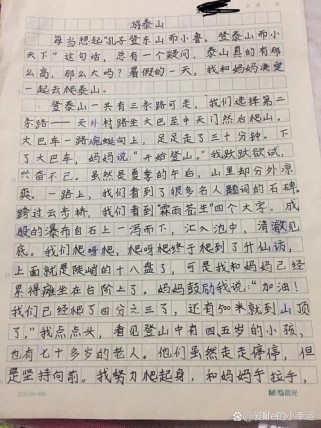 游泰山
每当想起“孔子登东山而小鲁，登泰山而小
天下”这句话，总有一个疑问，泰山真的有那
么高，那么大吗？暑假的一天，我和妈妈决定
一起去爬泰山。
登泰山一共有三条路可走，我们选择第二
条路——天外村路坐大巴至中天门然后爬山。
大巴车一路蜿蜒向上，足足走了三十分钟。下
了大巴车，妈妈说：“开始登山。”我跃跃欲试，
兴奋不已。虽然是夏季的午后，山里却分外凉
爽。一路上，我们看到了很多名人题词的石碑。
跨过云步桥，我们看到“霖雨苍生”四个大字。成
股的瀑布自石上一泻而下，汇入池中，清澈见
底。我们爬呀爬，爬呀爬终于爬到了升仙坊，
上面就是陡峭的十八盘了，可是我和妈妈已经
累得瘫坐在台阶上了。妈妈鼓励我说：“加油！
我们已经爬了四分之三了，还有500米就到山顶
了。”我点点头，看见登山中有四五岁的小孩，
也有七十多岁的老人。他们虽然走走停停，但
是坚持向前。我努力爬起身，和妈妈手拉手，
M&G晨光